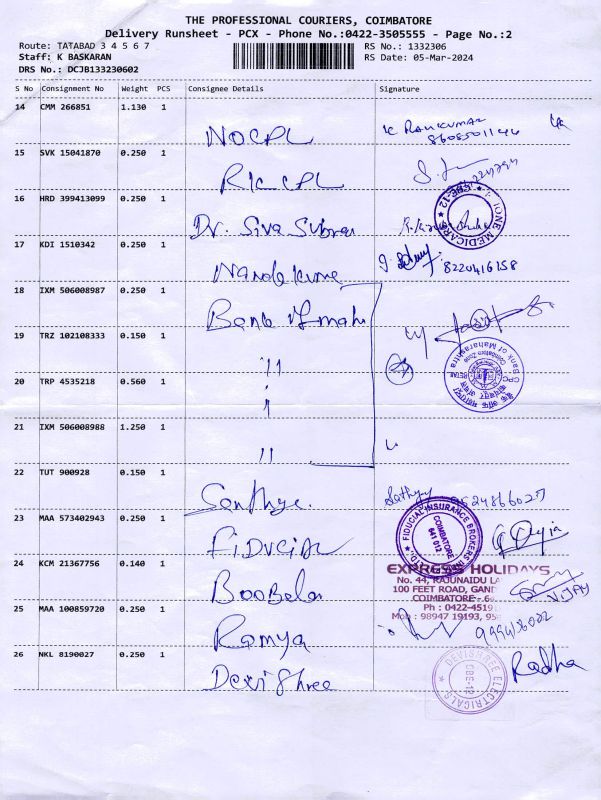 THE PROFESSIONAL COURIERS, COIMBATORE
Delivery Runsheet - PCX - Phone No.:0422-3505555 - Page No.:2
Route: TATABAD 3 4 5 6 7 RS No.: 1332306
Staff: K BASKARAN RS Date: 05-Mar-2024
DRS No.: DCJB133230602
S No Consignment No Weight PCS Consignee Details Signature
14 CMM 266851 1.130 1
NOCPL K RAMKUMAR
8608501146
15 SVK 15041870 0.250 1
RICCPL
16 HRD 399413099 0.250 1
Dr. Siva Subram
IONE MEDICARE ★ CBE-12 ★
17 KDI 1510342 0.250 1
Nanda kume 8220416158
18 IXM 506008987 0.250 1
Bank of mah
19 TRZ 102108333 0.150 1
11
CPC Bank of Maharashtra
Coimbatore Zone
RETAIL
20 TRP 4535218 0.560 1
21 IXM 506008988 1.250 1
11
22 TUT 900928 0.150 1
Senthye. Sathya 9524866027
23 MAA 573402943 0.250 1
FIDUCIAL
FIDUCIAL INSURANCE BROKERS
COIMBATORE
641 012
24 KCM 21367756 0.140 1
Boobala
EXPRESS HOLIDAYS
No. 44, RAJUNAIDU LA
100 FEET ROAD, GAND
COIMBATORE - 6
Ph : 0422-4519
Mob : 98947 19193, 95
VIJAY
25 MAA 100859720 0.250 1
Ramya
26 NKL 8190027 0.250 1
Devi Shree Radha
DEVISHREE ELECTRICALS
CBE-12